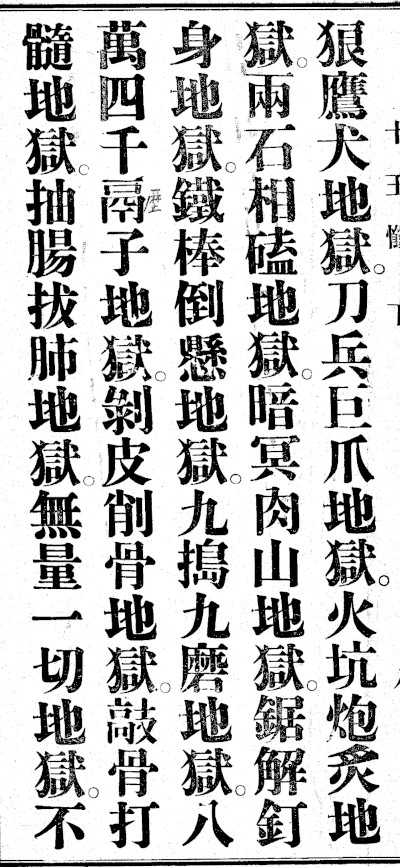 狼鷹犬地獄。刀兵巨爪地獄。火坑炮炙地
獄。兩石相磕地獄。暗冥肉山地獄。鋸解釘
身地獄。鐵棒倒懸地獄。九搗九磨地獄。八
萬四千鬲歷子地獄。剝皮削骨地獄。敲骨打
髓地獄。抽腸拔肺地獄。無量一切地獄。不